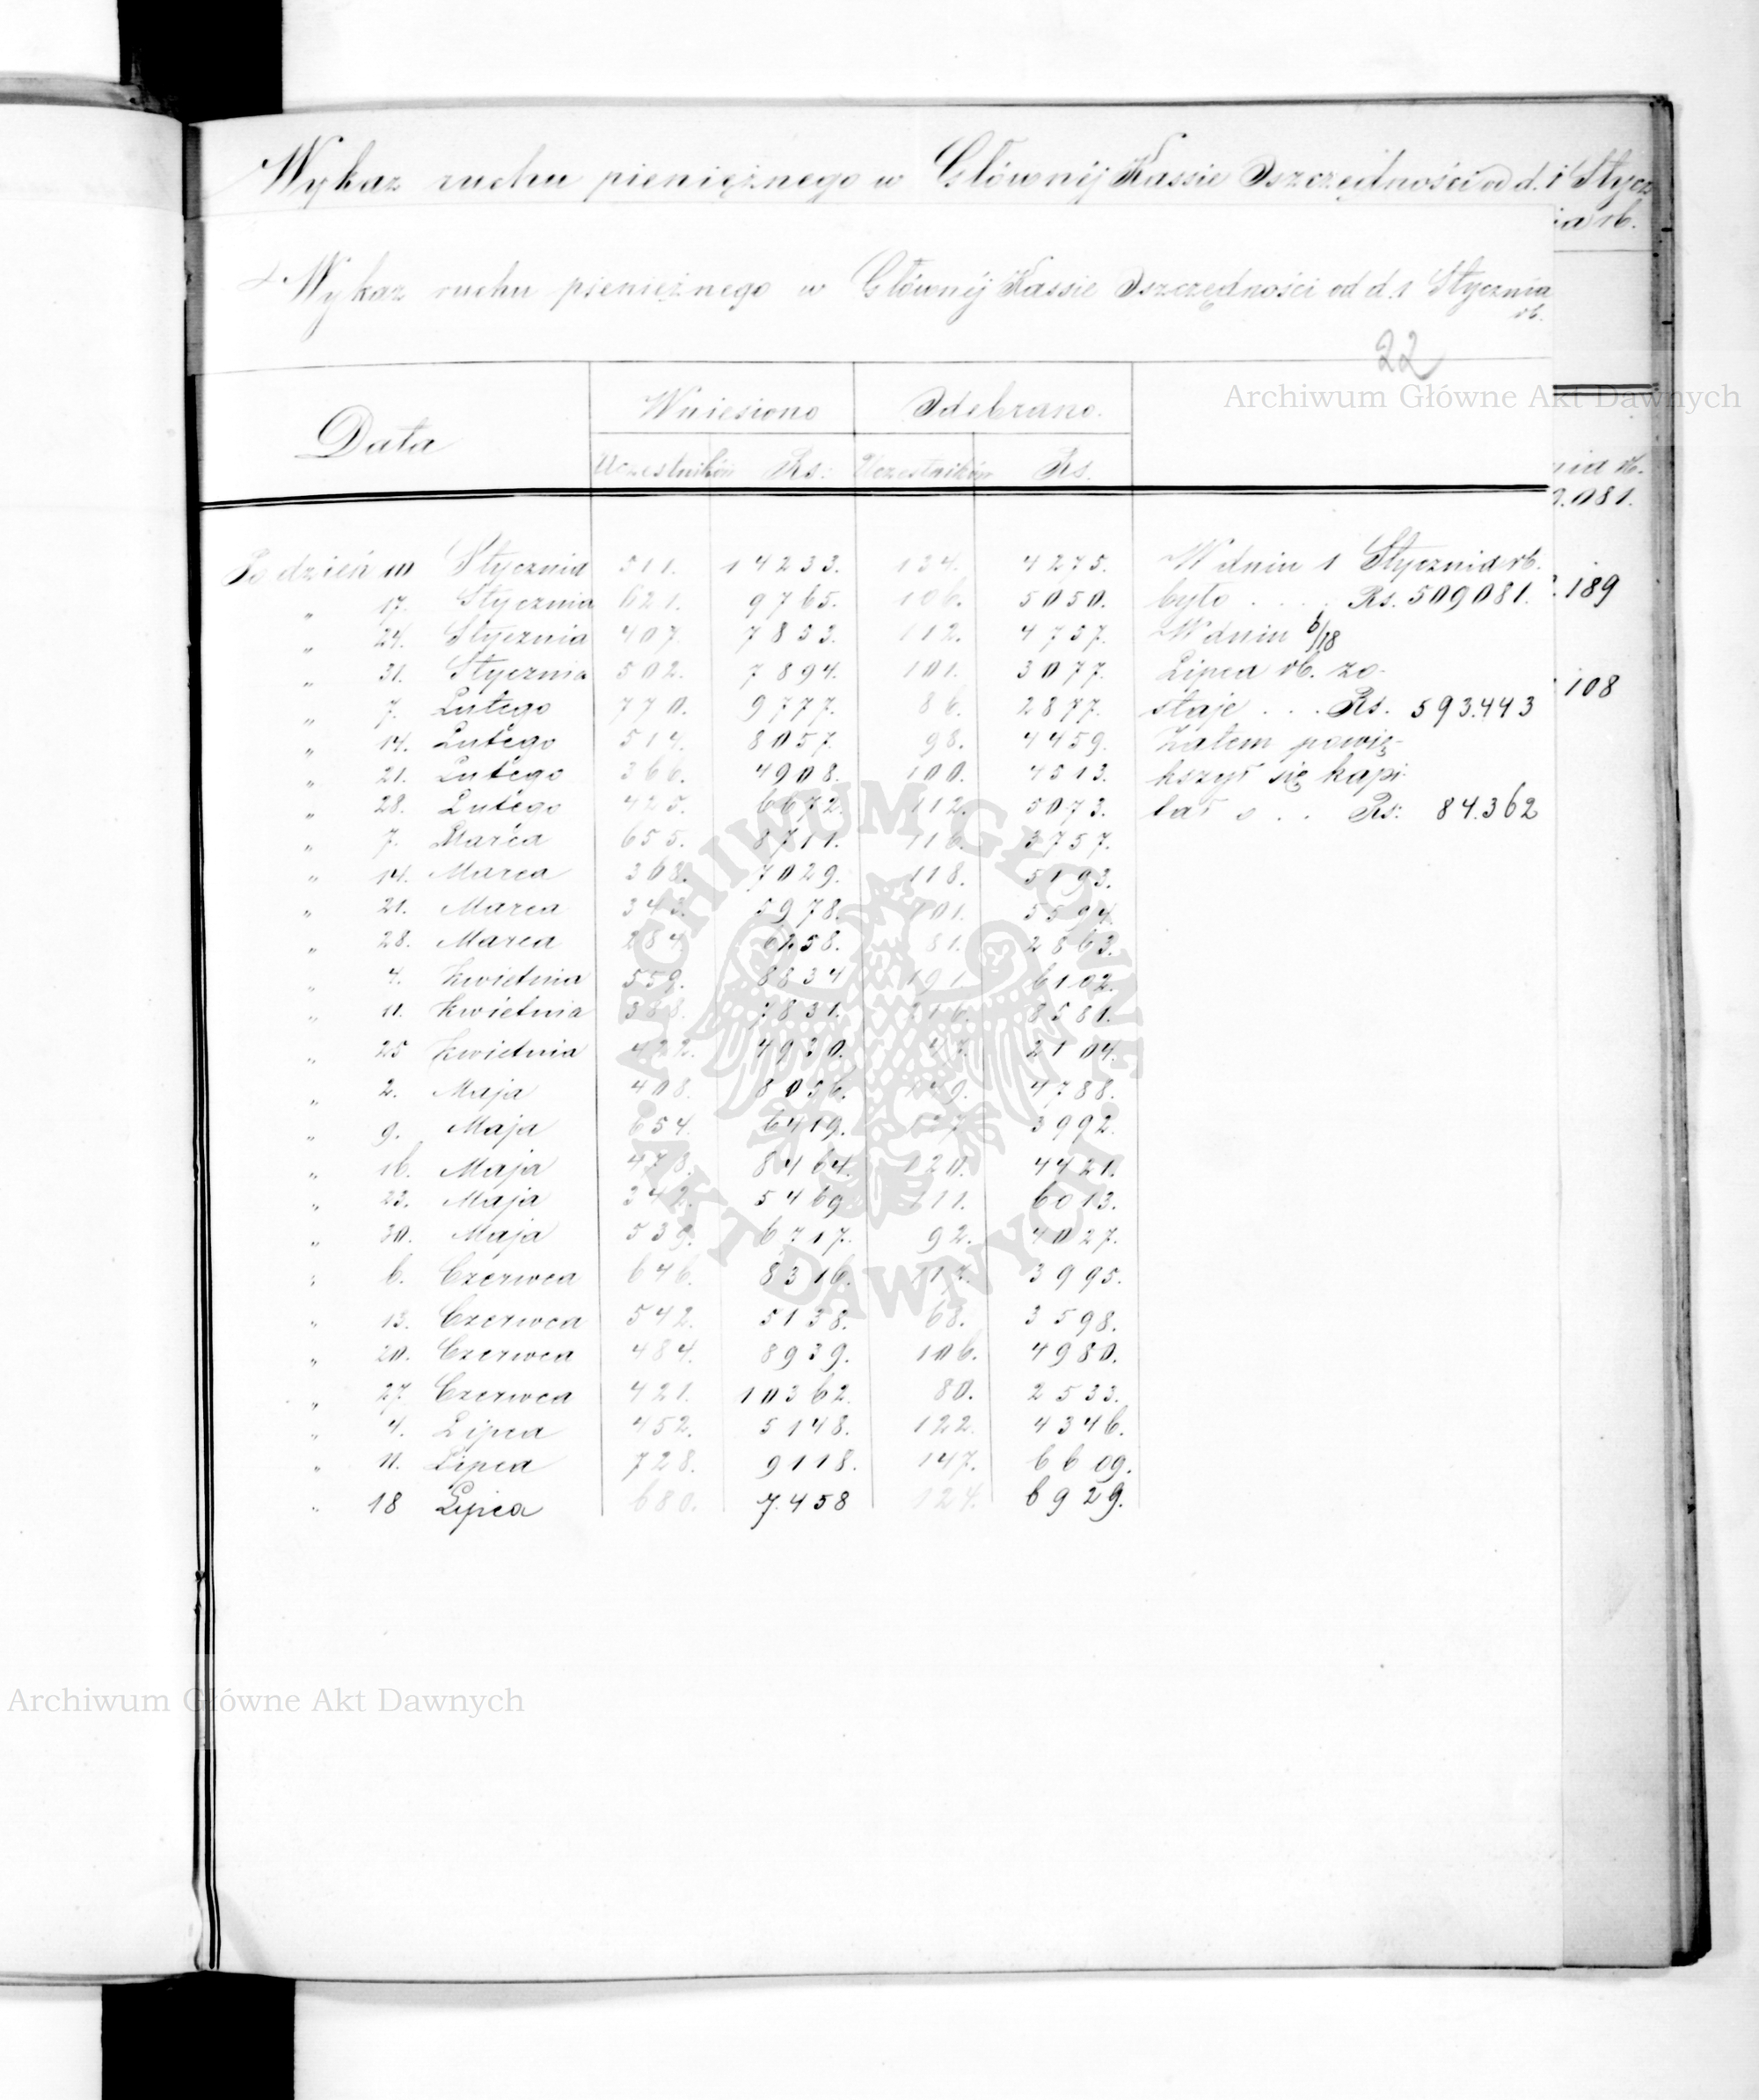 Wykaz ruchu pieniężnego w Głównéj Kassie Oszczędności od d. 1 Stycz
ia rb.
Wykaz ruchu pieniężnego w Głównéj Kassie Oszczędności od d. 1 Stycznia
rb.
22
Archiwum Główne Akt Dawnych
Data Wniesiono Odebrano.
Uczestników Rs: Uczestników Rs.
nia rb.
9.081.
Po dzień 10 Stycznia 511. 14233. 134. 4275. W dniu 1 Stycznia rb.
" 17. Stycznia 621. 9765. 106. 5050. było . . . Rs. 509081. 189
" 24. Stycznia 407. 7853. 112. 4757. W dniu 6/18
" 31. Stycznia 502. 7894. 101. 3077. Lipca rb. zo-
" 7. Lutego 770. 9777. 86. 2877. staje . . . Rs. 593.443 108
" 14. Lutego 514. 8057. 98. 4459. Zatem powię-
" 21. Lutego 366. 4908. 100. 4513. kszył się kapi-
" 28. Lutego 425. 6672. 112. 5073. tał o . . Rs: 84.362
" 7. Marca 655. 8711. 116. 3757.
" 14. Marca 368. 7029. 118. 5193.
" 21. Marca 343. 5978. 101. 5594.
" 28. Marca 284. 6258. 81. 2863.
" 4. Kwietnia 559. 8834 191. 6102.
" 11. Kwietnia 388. 7831. 216. 8581.
" 25 Kwietnia 422. 4930. 2104.
" 2. Maja 408. 8056. 149. 4788.
" 9. Maja 654. 6419. 3992.
" 16. Maja 478. 8464. 120. 4421.
" 23. Maja 342. 5469 111. 6013.
" 30. Maja 539. 6717. 92. 4027.
" 6. Czerwca 646. 8316. 117. 3995.
" 13. Czerwca 542. 5138. 68. 3598.
" 20. Czerwca 484. 8939. 106. 4980.
" 27. Czerwca 421. 10362. 80. 2533.
" 4. Lipca 452. 5148. 122. 4346.
" 11. Lipca 728. 9118. 147. 6609.
" 18 Lipca 680. 7.458 124. 6929.
ARCHIWUM GŁÓWNE
AKT DAWNYCH
Archiwum Główne Akt Dawnych